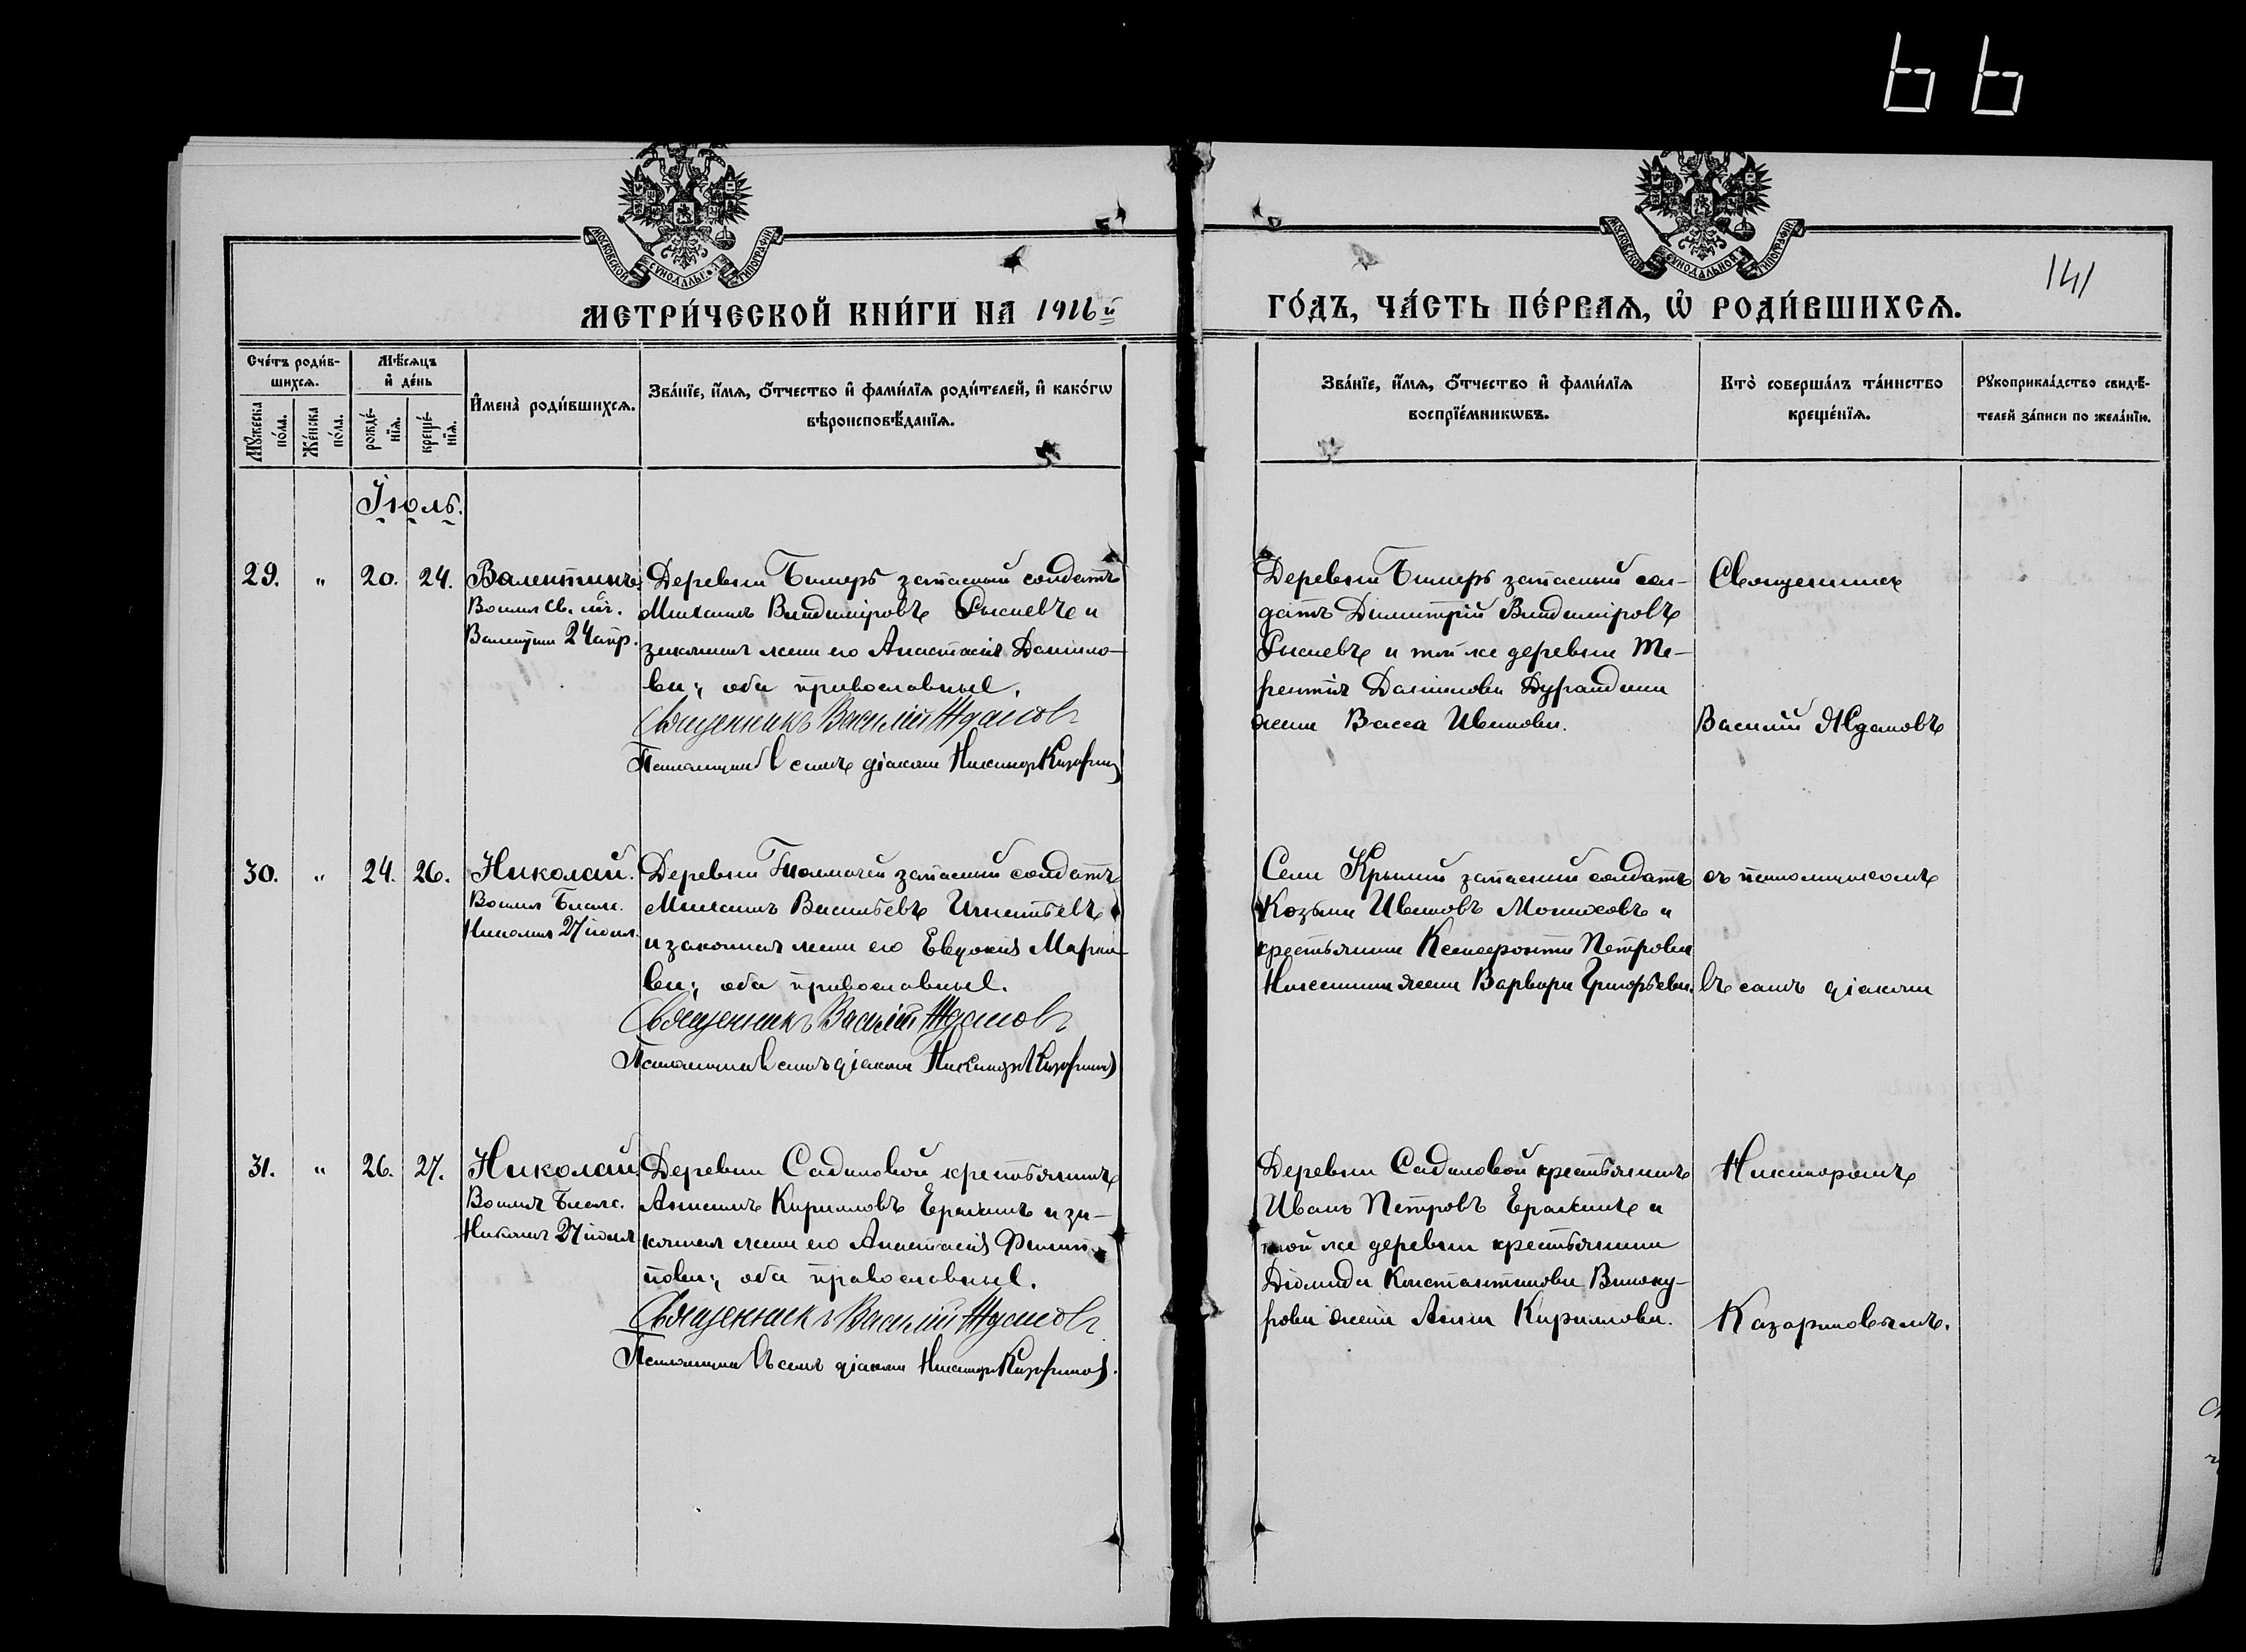 66
МОСКОВСКОЙ СѴНОДАЛЬНОЙ ТИПОГРАФІИ
МОСКОВСКОЙ СѴНОДАЛЬНОЙ ТИПОГРАФІИ
141
МЕТРИ́ЧЕСКОЙ КНИ́ГИ НА 1916й
ГО́ДЪ, ЧА́СТЬ ПЕ́РВАѦ, Ѡ҆ РОДИ́ВШИХСѦ.
Сче́тъ роди́в-
шихсѧ.
Мѣ́сѧцъ
и҆ де́нь
Мꙋ́жеска
по́ла.
Же́нска
по́ла.
рожде́-
нїѧ.
креще́-
нїѧ.
И҆мена̀ роди́вшихсѧ.
Зва́нїе, и҆́мѧ, ѻ҆́тчество и҆ фами́лїѧ роди́телей, и҆ како́гѡ
вѣроисповѣ́данїѧ.
Зва́нїе, и҆́мѧ, ѻ҆́тчество и҆ фами́лїѧ
воспрїе́мникѡвъ.
Кто̀ соверша́лъ та́инство
креще́нїѧ.
Рꙋкоприкла́дство свидѣ́-
телей за́писи по жела́нїю.
Іюль.
29. " 20. 24. Валентинъ.
Валентин 24 апр.
Деревни запасный солдатъ
Михаилъ Владиміровъ и
законная жена его Анастасія Данило-
ва; оба православные.
Священникъ Василій Ждановъ
Псаломщикъ въ санѣ діакона Никаноръ Казариновъ
Деревни запасный сол-
датъ Димитрій Владиміровъ
и той же деревни Те-
рентія Данилова
жена Васса Иванова.
Священникъ
Василій Ждановъ
30. " 24. 26. Николай.
Николая 27 іюля.
Деревни запасный солдатъ
Михаилъ Васильевъ Игнатьевъ
и законная жена его Евдокія Марко-
ва; оба православные.
Священникъ Василій Ждановъ
Псаломщикъ въ санѣ діакона Никаноръ Казариновъ
Села запасный солдатъ
Козьма Ивановъ и
крестьянина Петрова
жена Варвара Григорьева.
съ псаломщикомъ
въ санѣ діакона
31. " 26. 27. Николай.
Николая 27 іюля
Деревни Садиловой крестьянинъ
Кирилловъ и за-
конная жена его Анастасія Филип-
пова; оба православные.
Священникъ Василій Ждановъ
Псаломщикъ въ санѣ діакона Никаноръ Казариновъ.
Деревни Садиловой крестьянинъ
Иванъ Петровъ и
той же деревни крестьянина
Діомида Константинова Виноку-
рова жена Анна Кириллова.
Никаноромъ
Казариновымъ.